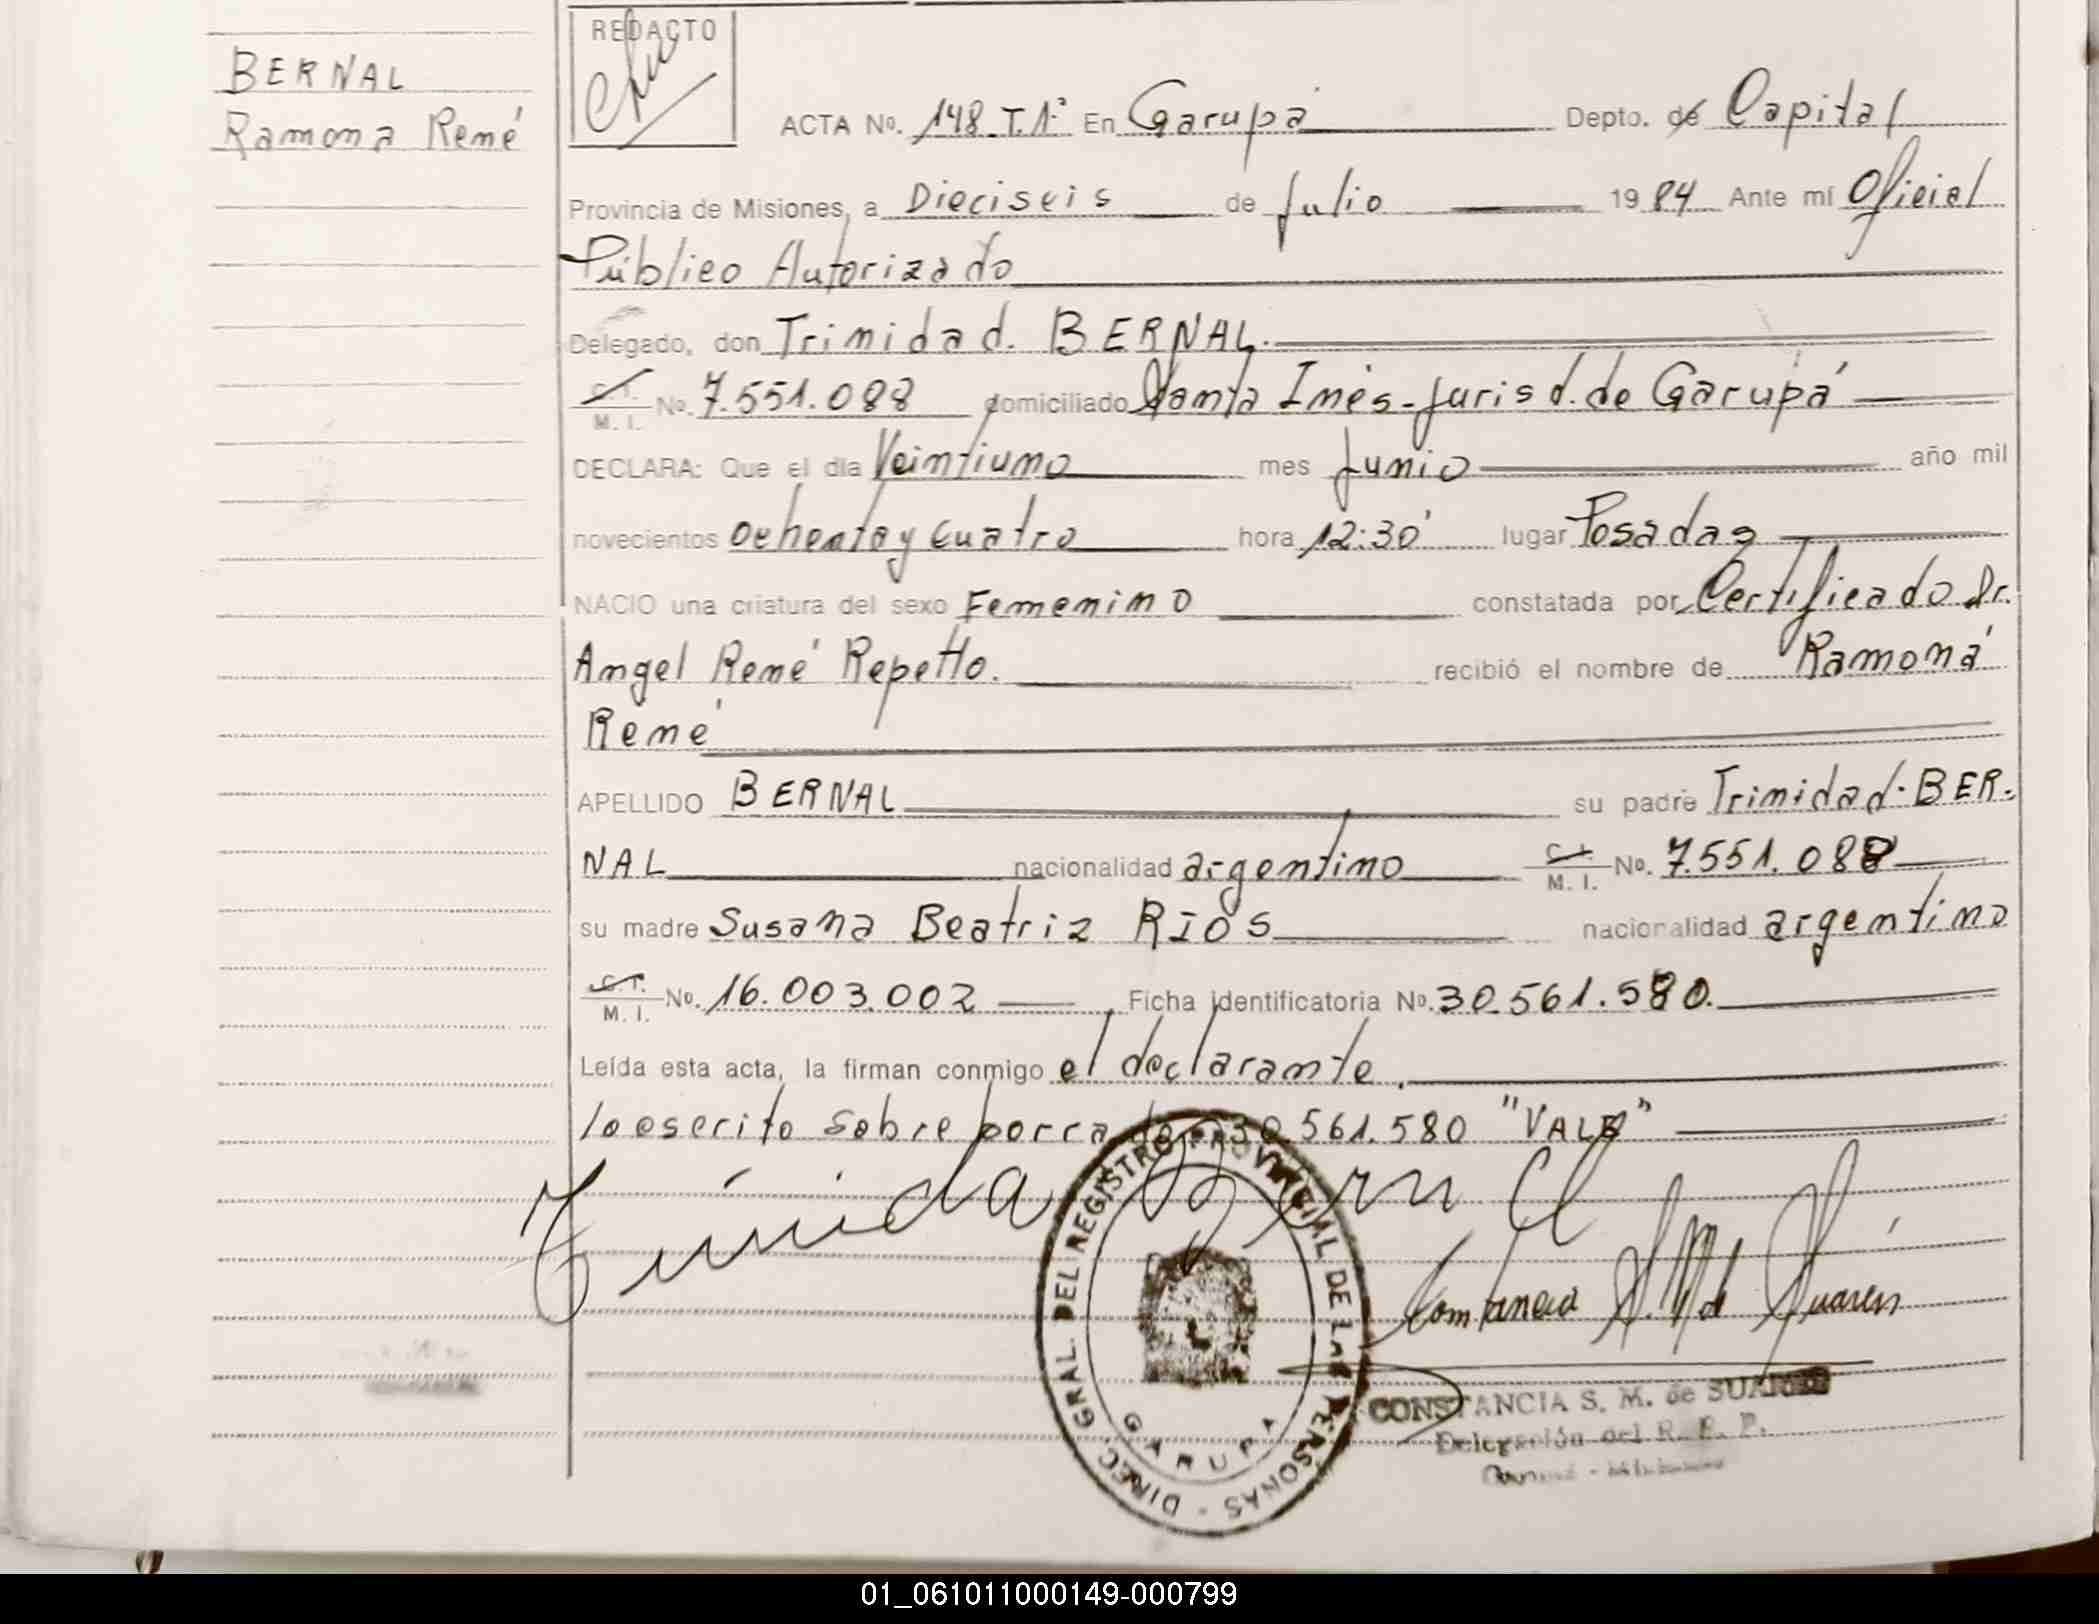 BERNAL
Ramona René
REDACTO
ACTA No. 148 T.1° En Garupá Depto. de Capital
Provincia de Misiones, a Dieciseis de Julio 1984 Ante mí Oficial
Público Autorizado
Delegado, don Trinidad. BERNAL.
C. I. M. I. No. 7.551.088 domiciliado Santa Inés-Jurisd. de Garupá
DECLARA: Que el día Veintiuno mes Junio año mil
novecientos Ochenta y cuatro hora 12:30' lugar Posadas
NACIO una criatura del sexo Femenino constatada por Certificado Dr.
Angel René Repetto. recibió el nombre de Ramona
René
APELLIDO BERNAL su padre Trinidad. BER-
NAL nacionalidad argentino C. I. M. I. No. 7.551.088
su madre Susana Beatriz RIOS nacionalidad argentino
C. I. M. I. No. 16.003.002 Ficha identificatoria No. 30.561.580.
Leída esta acta, la firman conmigo el declarante.
lo escrito sobre borrado 30.561.580 "VALE"
Trinidad Bernal
Constancia S. M. de Suarez
CONSTANCIA S. M. de SUAREZ
Delegación del R. P. P.
DIREC. GRAL. DEL REGISTRO PROVINCIAL DE LAS PERSONAS -
GARUPA
01_061011000149-000799